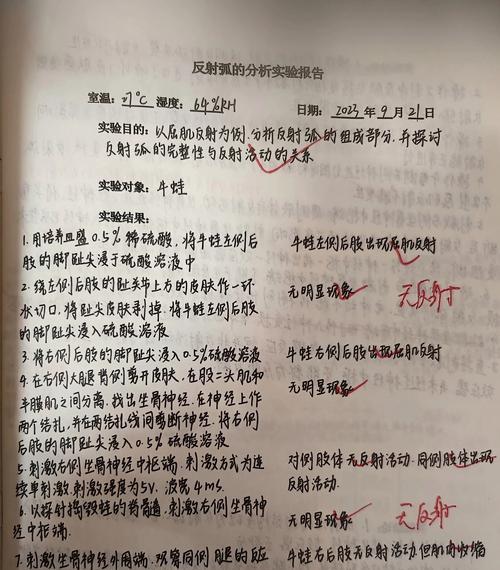 反射弧的分析实验报告
室温: 27℃ 湿度: 64%RH 日期: 2023 年 9 月 21 日
实验目的: 以屈肌反射为例.分析反射弧的组成部分.并探讨
反射弧的完整性与反射活动的关系
实验对象: 牛蛙
实验结果:
1. 用培养皿盛0.5%稀硫酸, 将牛蛙左侧后 牛蛙左侧后肢出现屈肌反射
肢的脚趾尖浸于硫酸溶液中
2. 绕左侧后肢的趾关节上方的皮肤作一环 无明显现象 无反射
状切口, 将趾尖皮肤剥掉. 将牛蛙左侧后肢
的脚趾尖浸入硫酸溶液
3. 将右侧后肢的脚趾尖浸入0.5%硫酸溶液 牛蛙右侧后肢出现屈肌反射
4. 在右侧大腿背侧剪开皮肤. 在股二头肌和 无明显现象
半膜肌之间分离. 找出坐骨神经. 在神经上作
两个结扎, 并在两结扎线间剪断神经. 将右侧
后肢的脚趾尖浸入0.5%硫酸溶液
5. 刺激右侧坐骨神经中枢端. 刺激方式为连 对侧肢体无反射活动. 同侧肢体出现
续单刺激. 刺激强度为5V. 波宽4ms. 反射活动.
6. 以探针捣毁蛙的脊髓, 刺激右侧坐骨神 无明显现象 无反射
经中枢端.
7. 刺激坐骨神经外周端. 观察同侧腿的反应 牛蛙右后肢无反射活动. 但肌肉收缩